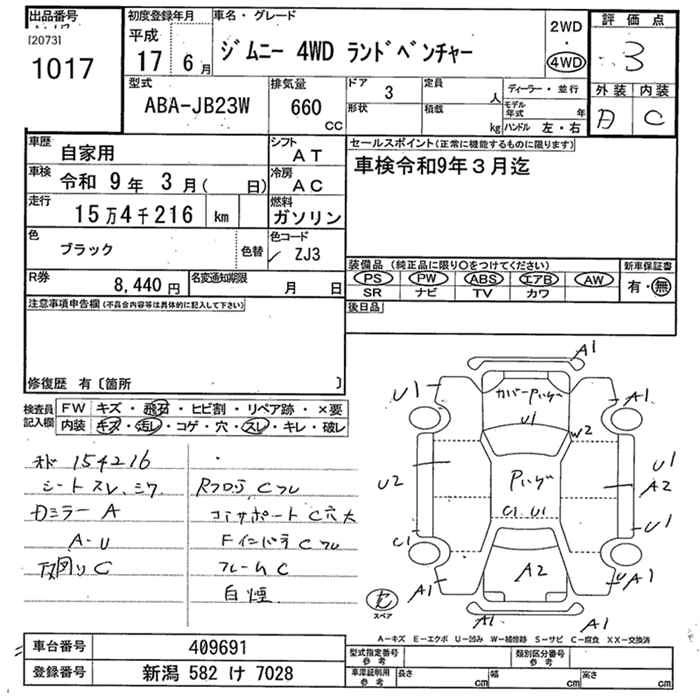 出品番号
[2073]
1017
初度登録年月
平成
17 6月
車名・グレード
ジムニー 4WD ランドベンチャー
2WD
・
4WD
評価点
3
外装 内装
D C
型式
ABA-JB23W
排気量
660
CC
ドア 3
定員 人
形状
積載 kg
ディーラー・並行
モデル年式 年
ハンドル 左・右
車歴 自家用
シフト AT
車検 令和 9年 3月( 日)
冷房 AC
走行 15万4千216 km
燃料 ガソリン
色 ブラック 色替
色コード ZJ3
R券 8,440円
名変通知期限 月 日
セールスポイント(正常に機能するものに限ります)
車検令和9年3月迄
装備品(純正品に限り○をつけてください)
PS PW ABS エアB AW
SR ナビ TV カワ
新車保証書
有・無
後日品
注意事項申告欄(不具合内容等は具体的に記入して下さい)
修復歴 有〔箇所 〕
検査員記入欄
FW キズ・飛石・ヒビ割・リペア跡・×要
内装 キズ・汚レ・コゲ・穴・スレ・キレ・破レ
154216
シートスレ、シワ
Dミラー A
A-U
下廻りC
Rフロア Cフレ
コアサポート C穴大
Fインパネ Cフレ
フレームC
白煙
A1
U1
A1
カバーPハゲ
U1
W2
U2
Pハゲ
U1
A2
C1 U1
C1
U1
A2
A1
U A1
A1
A1
セ
スペア
A-キズ E-エクボ U-凹み W-補修跡 S-サビ C-腐食 XX-交換済
車台番号 409691
登録番号 新潟 582 け 7028
型式指定番号 参考
類別区分番号 参考
車庫証明用 参考
長さ cm
幅 cm
高さ cm